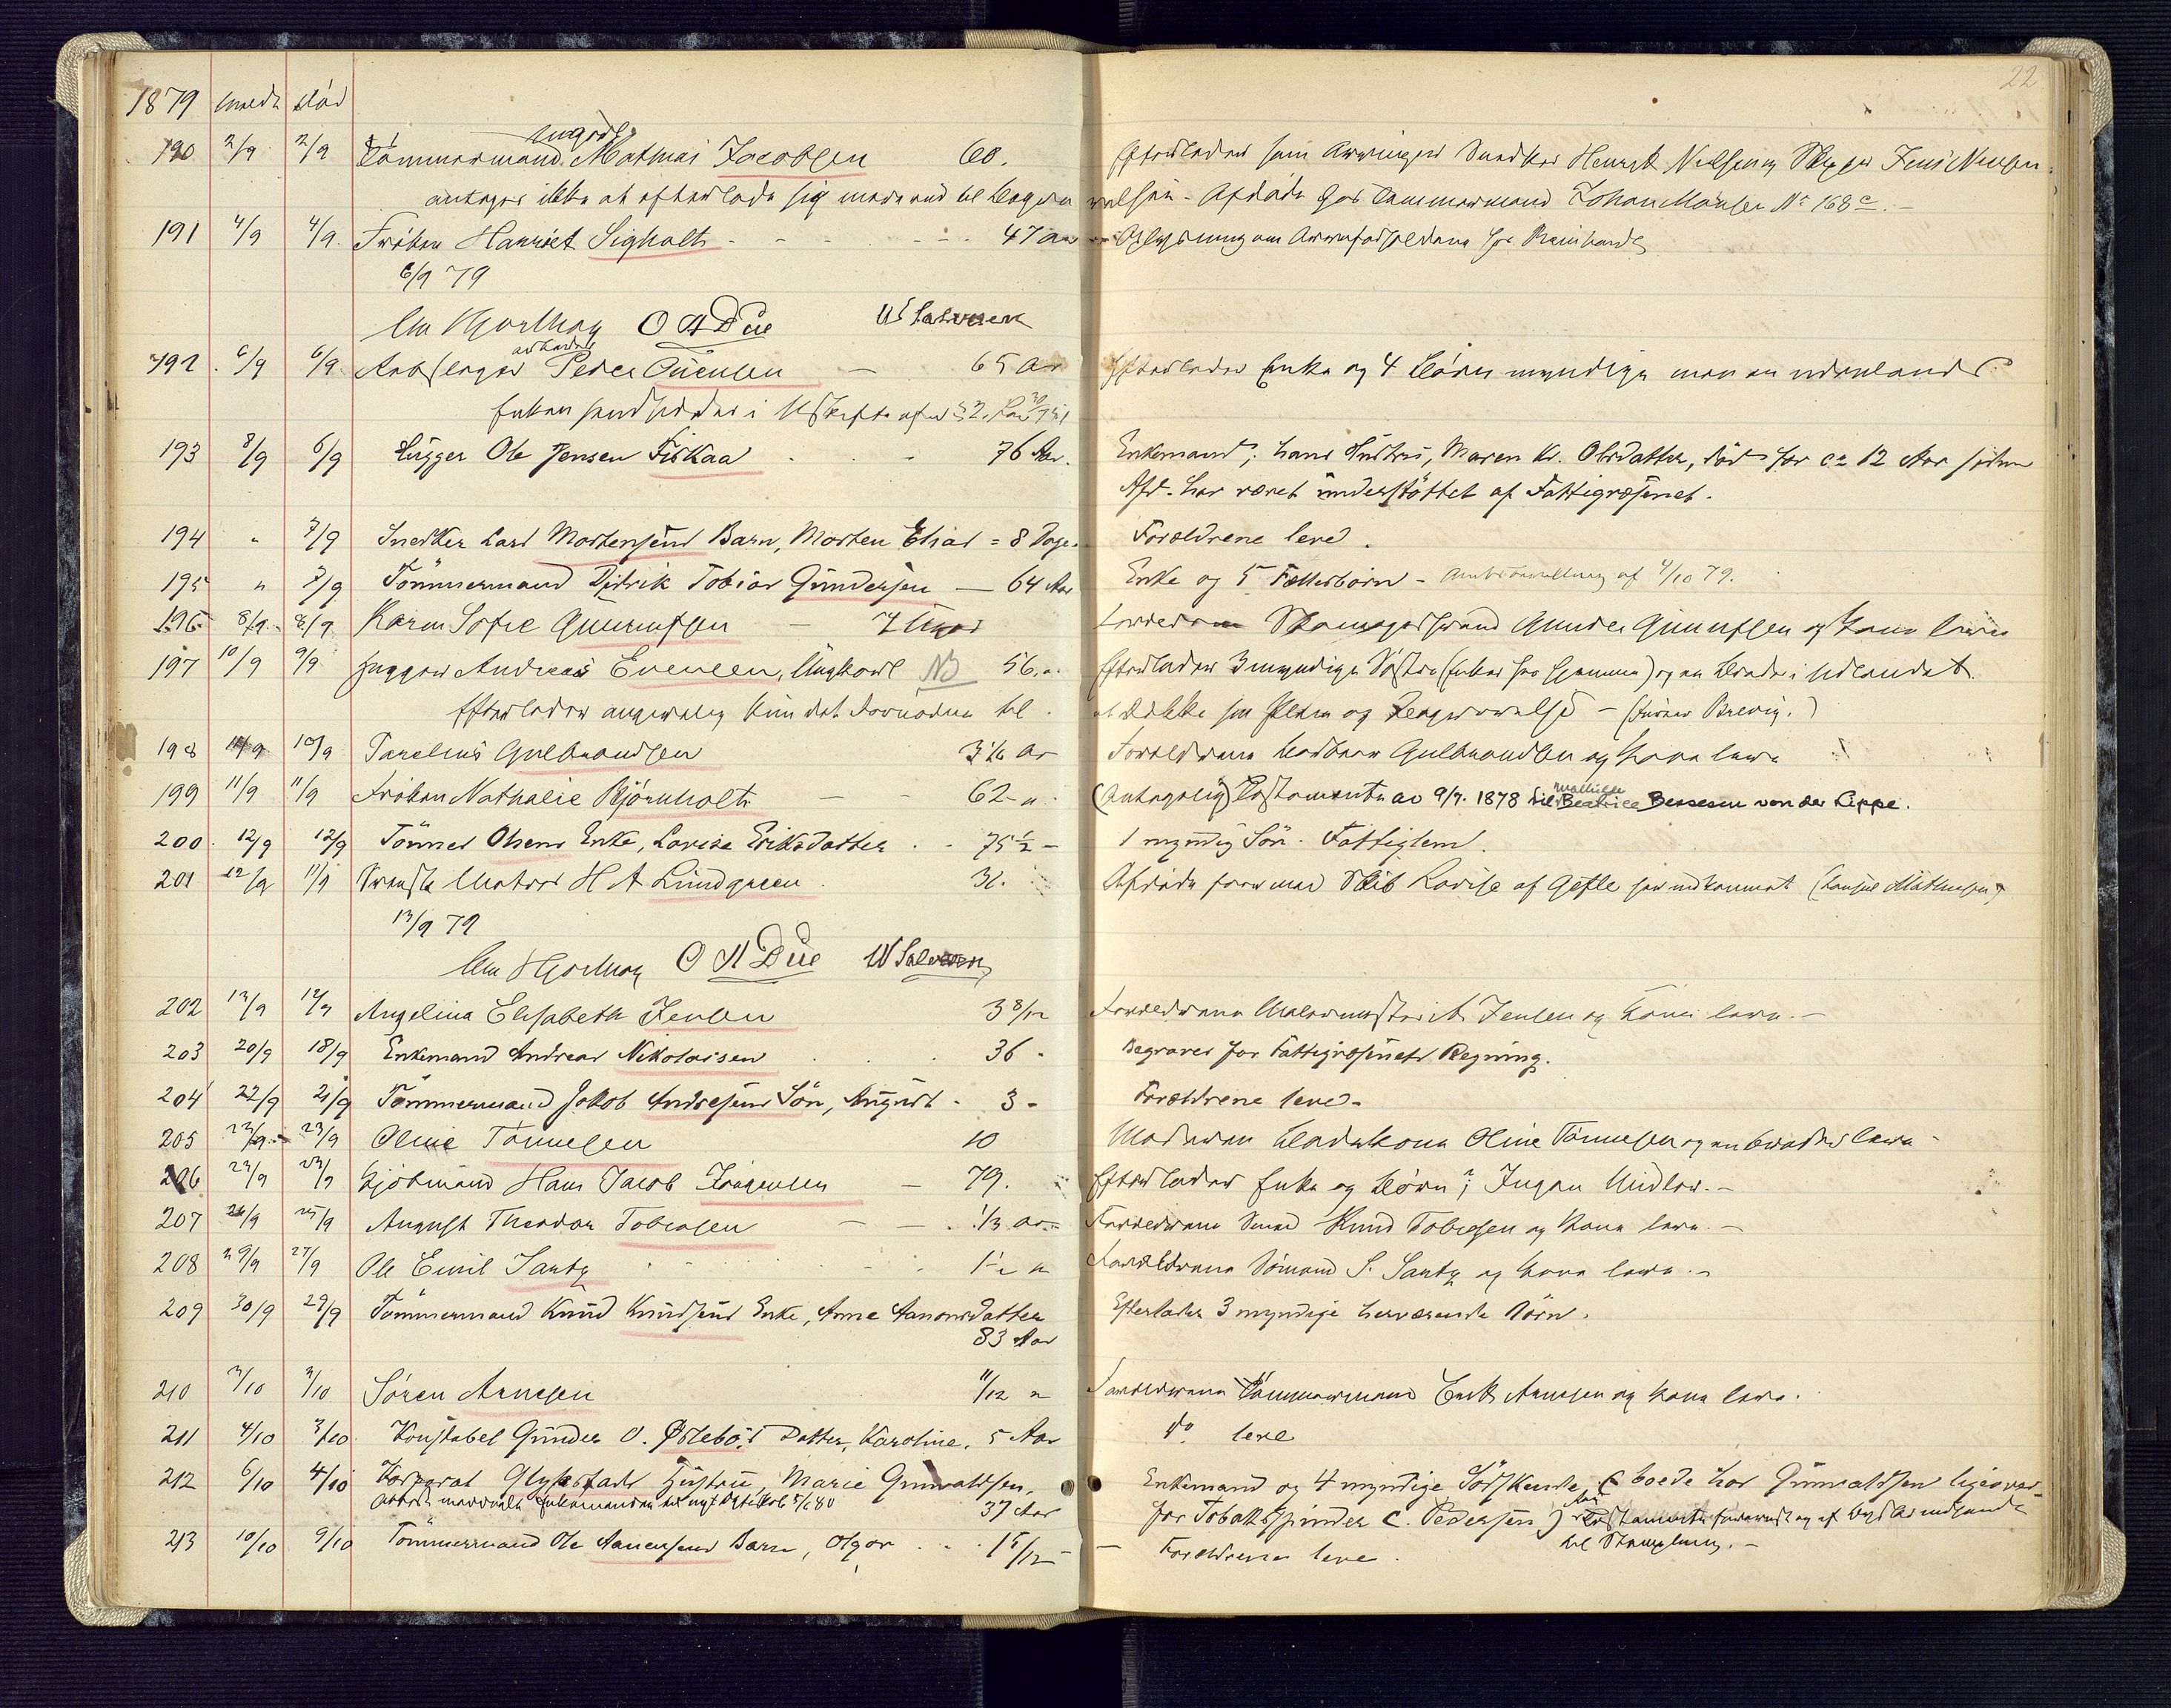 22
1879 meldt död
190 2/9 2/9 Tömmermand ungkarl Mathias Jacobsen 60. Efterlader som Arvinger Snedker Henrik Nielsen og Skipper Jens Nielsen
antages ikke at efterlade sig mere end til Begravelsen - Afdöde hos Tømmermand Johan Monsen No 168c. -
191 4/9 4/9 Fröken Harriet Sigholt 47 aar Oplysning om Arveforholdene hos Reinhardt
6/9 79
Chr Hjorthøy O A Due W Salvesen
192 6/9 6/9 arbeider Peder Evensen 65 ar Efterlader Enke og 4 Börn myndige men en udenlands
Enken hensidder i Uskifte
193 8/9 6/9 Bügger Ole Jensen Fiskaa 76 Aar. Enkemand; hans Hustru, Maren Kr. Olsdatter, död for ca 12 Aar siden
Afd. har været understöttet af Fattigvæsenet.
194 " 7/9 Snedker Carl Mortensens Barn, Morten Elias = 8 Dage. Forældrene leve.
195 " 7/9 Tömmermand Didrik Tobias Gundersen — 64 Aar Enke og 5 Fællesbörn - Anmeldning af 4/10 79.
196 8/9 8/9 Karen Sofie Gunnufsen 7 Uger Forældrene Gunder Gunnufsen og Kone leve
197 10/9 9/9 Andreas Evensen, Ungkarl NB 56 a. Efterlader 3 myndige Söstre (Enker her hjemme) og en Broder i Udlandet
Efterlader angivelig kun det Fornödne til at dække sin Pleie og Begravelse - (Brevig.)
198 10/9 10/9 Tarelius Gulbrandsen 3 1/6 ar Forældrene Gulbrandsen og Kone leve
199 11/9 11/9 Fröken Nathalie Björnholt 62 a (Antagelig) Testamente av 9/7. 1878 til Mathilde Beatrice Bessesen von der Lippe.
200. 12/9 12/9 Tönnes Olsens Enke, Lovise Eriksdatter 75 1/2 - 1 myndig Sön. Fattiglem.
201 12/9 11/9 Svensk Matros H A Lundgreen 31. Afdöde foer med Skib Lovise af Gefle her indkommet (Konsul Mathiesen)
13/9 79
Chr Hjorthøy O A Due W Salvesen
202 13/9 12/9 Angelina Elisabeth Jensen 3 8/12 Forældrene Malermester A. Jensen og Kone leve. -
203 20/9 18/9 Enkemand Andreas Nikolaisen 36 - Begraves for Fattigvæsenets Regning.
204 22/9 21/9 Tömmermand Jakob Andresens Sön, August - 3 - Forældrene leve -
205 23/9 23/9 Oline Tönnesen 10 Moderen Oline Tönnesen og en broder leve -
206 23/9 23/9 Kjöbmand Hans Jacob Jörgensen — 79. Efterlader Enke og Börn; Ingen Midler. -
207 26/9 25/9 August Theodor Tobiasen 1/3 ar Forældrene Smed Knud Tobiasen og Kone leve. -
208 29/9 27/9 Ole Emil Santz 1 1/2 a Forældrene Sömand S. Santz og Kone leve. -
209 30/9 29/9 Tömmermand Knud Knudsens Enke, Anne Aanonsdatter Efterlader 3 myndige herværende Börn.
83 Aar
210 3/10 3/10 Sören Arnesen 11/12 a Forældrene Tömmermand Arnesen og Kone leve.
211 4/10 3/10 Konstabel Gunder O. Østebøs Datter, Karoline. 5 Aar do leve
212 6/10 4/10 Korporal Glybstads Hustru, Marie Gunvaldsen. Enkemand og 4 myndige Södskende, (boede hos Gunvaldsen ligeover-
37 Aar for Tobakspinder C. Pedersen) Testamente
til Stempling. -
213 10/10 9/10 Tömmermand Ole Aanensens Barn, Olgar 1 5/12 - Forældrene leve.